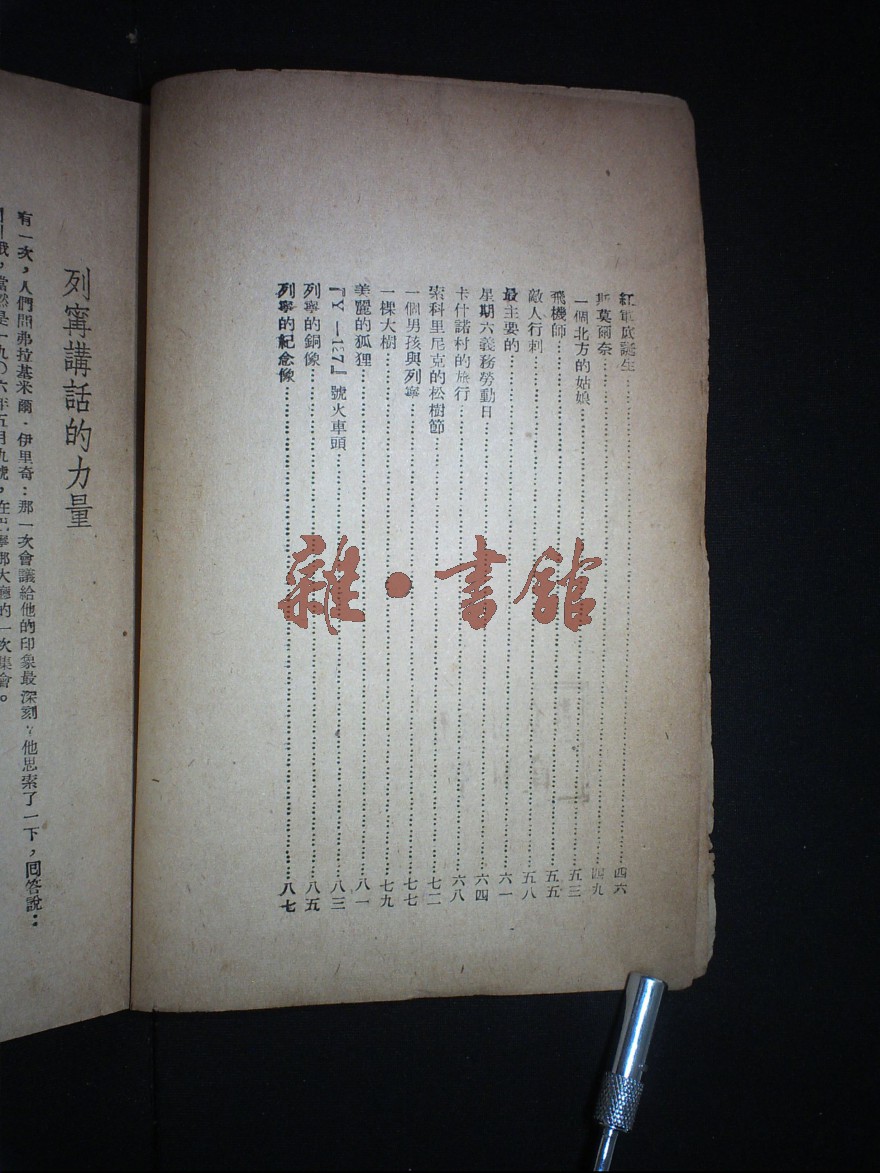 紅軍底誕生……四六
斯莫爾奈……四九
一個北方的姑娘……五三
飛機師……五五
敵人行刺……五八
最主要的……六一
星期六義務勞動日……六四
卡什諾村的旅行……六八
索科里尼克的松樹節……七二
一個男孩與列寧……七七
一棵大樹……七九
美麗的狐狸……八一
『Y—137』號火車頭……八三
列寧的銅像……八五
列寧的紀念像……八七
雜•書館
列甯講話的力量
有一次，人們問弗拉基米爾·伊里奇：那一次會議給他的印象最深刻？他思索了一下，回答說：
當然是一九〇六年五月九號，在
大廳的一次集會。